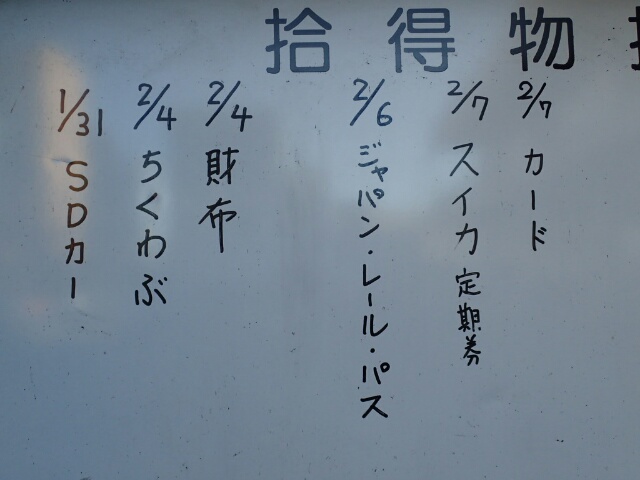 拾得物
2/7 カード
2/7 スイカ定期券
2/6 ジャパン・レール・パス
2/4 財布
2/4 ちくわぶ
1/31 SDカー